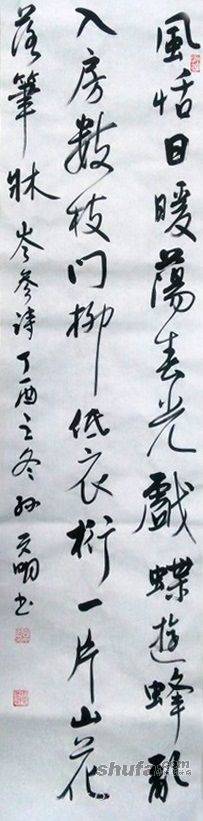 風恬日暖蕩春光戲蝶遊蜂亂
入房數枝門柳低衣桁一片山花
落筆牀岑參诗丁酉之冬孙天明书
shufa